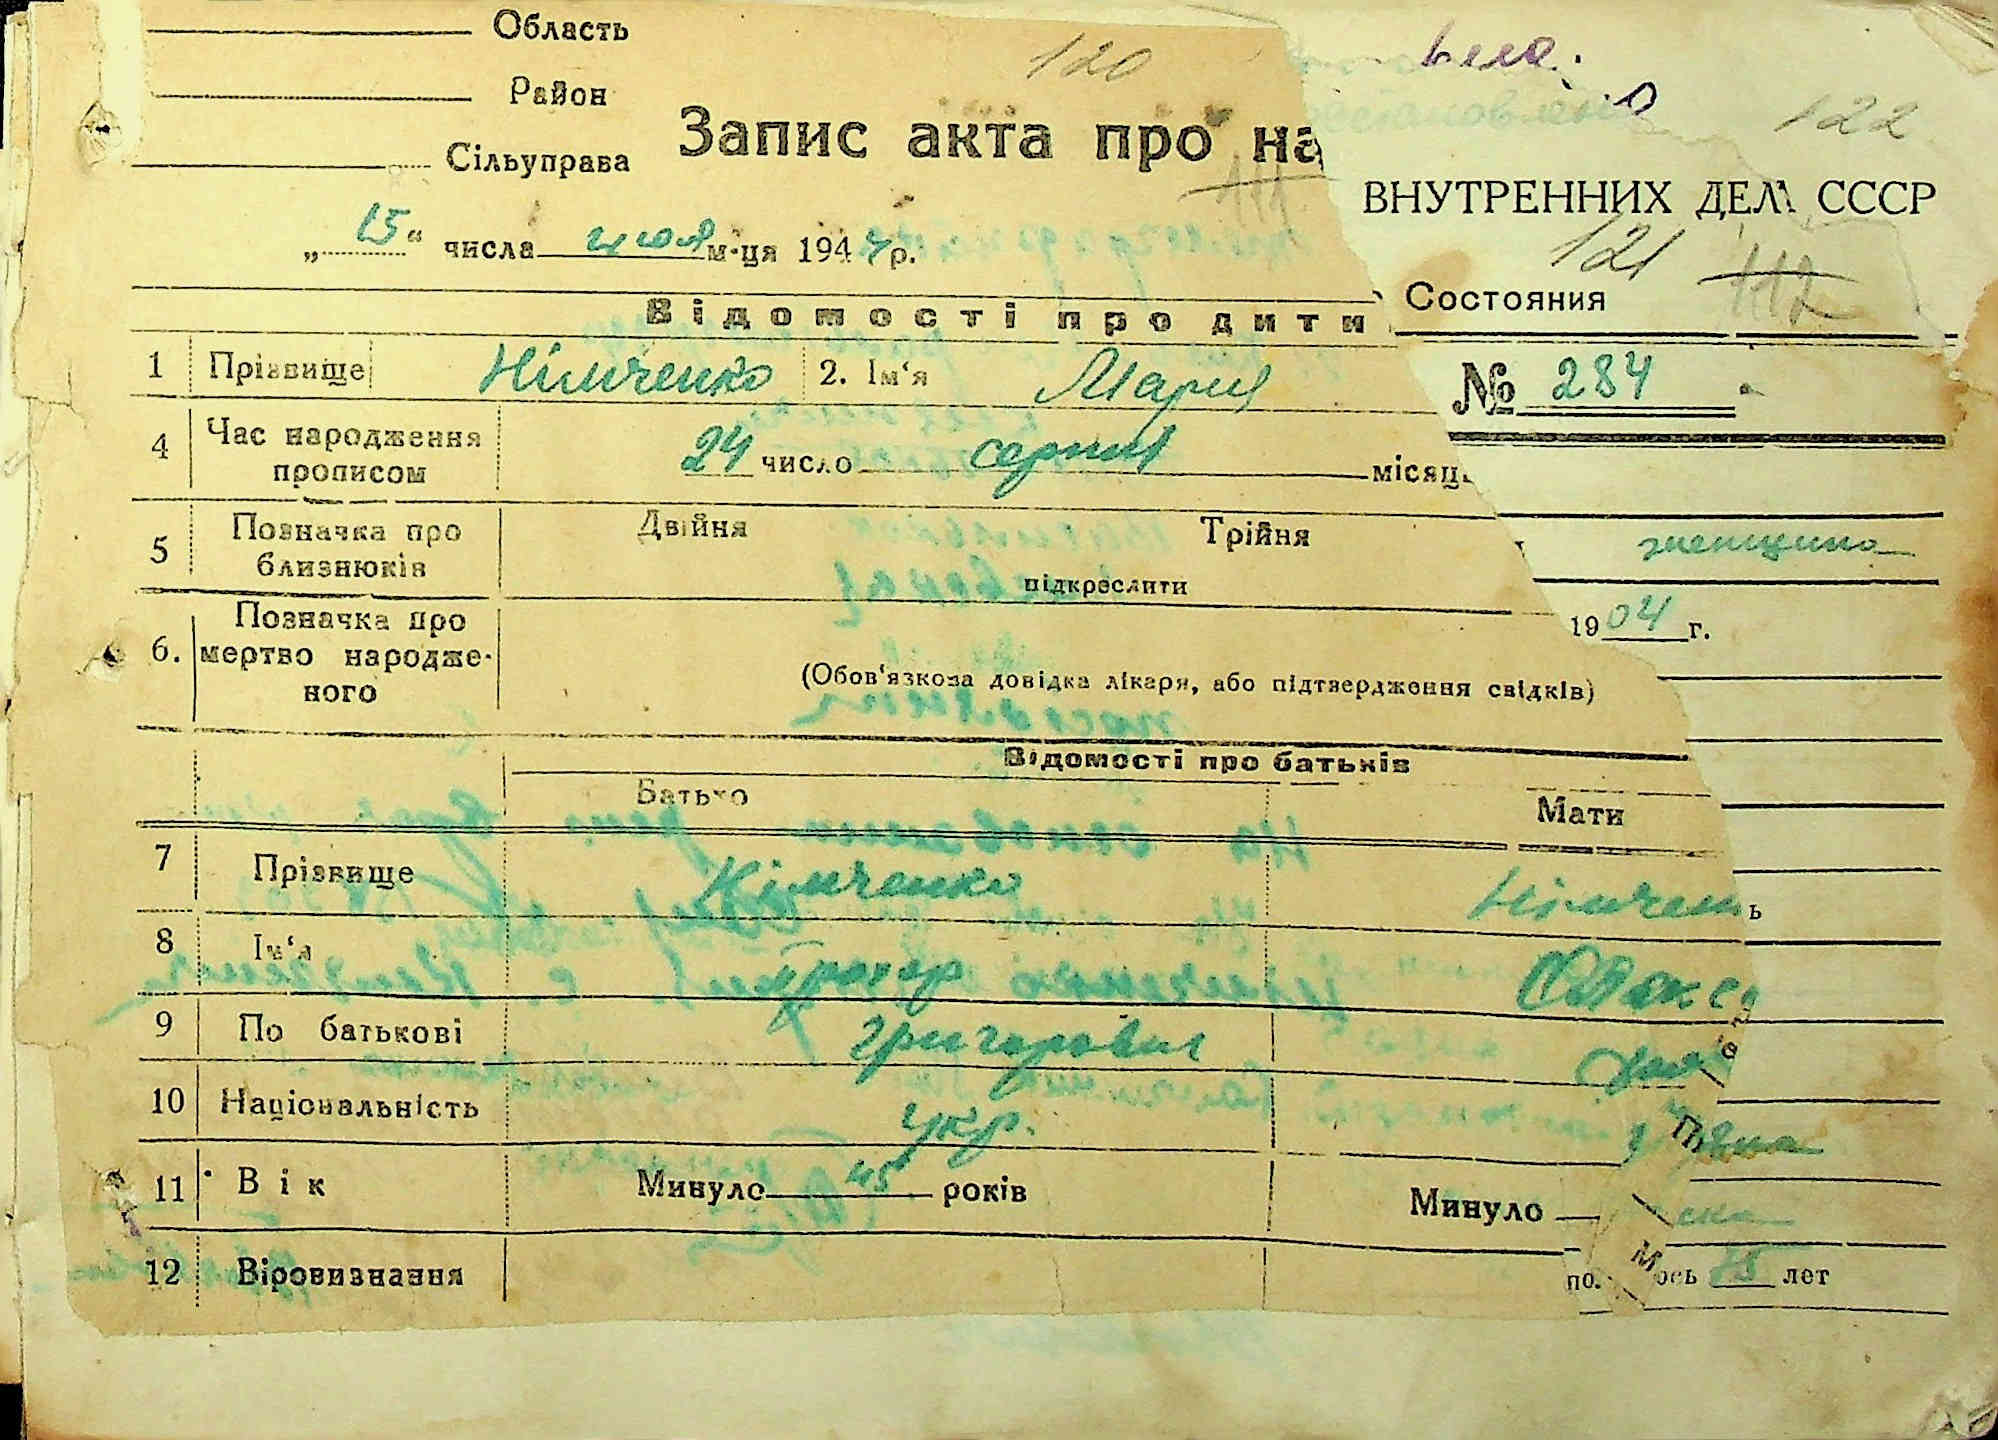 Область
вело.
Район
120
122
Запис акта про на
Сільуправа
111
ВНУТРЕННИХ ДЕЛ СССР
„15“ числа июля м-ця 1944 р.
121
112
Состояния
Відомості про дити
№ 284
1 Прізвище Німченко 2. Ім‘я Мария
4 Час народження прописом 24 число серпня місяц
5 Позначка про близнюків Двійня Трійня
підкреслити
женщина
1904 г.
6. Позначка про мертво народже-
ного
(Обов‘язкова довідка лікаря, або підтвердження свідків)
Відомості про батьків
Батько Мати
7 Прізвище Німченко Німчен
ь
8 Ім‘я Прохор
9 По батькові Григорович
10 Національність укр.
11 Вік Минуло 45 років Минуло
ска
12 Віровизнання
ось 75 лет